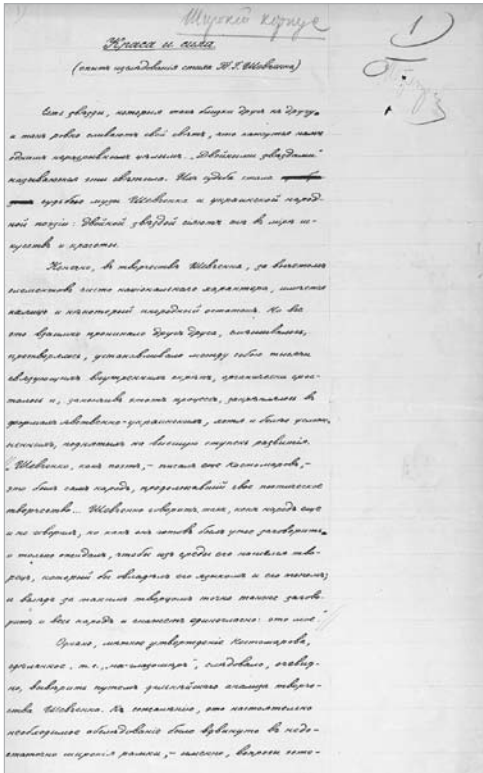 Широкий корпус
1
Краса и сила
(опытъ изслѣдованія стиля Т. Г. Шевченка)
Есть звѣзды, которыя такъ близки другъ къ другу
и такъ ровно сливаютъ свой свѣтъ, что кажутся намъ
однимъ неразрывнымъ цѣлымъ. „Двойными звѣздами"
называются эти свѣтила. Ихъ судьба стала
судьбою музы Шевченка и украинской народ-
ной поэзіи: двойной звѣздой сіяютъ онѣ въ мірѣ ис-
кусствъ и красоты.
Конечно, въ творчествѣ Шевченка, за вычетомъ
элементовъ чисто національнаго характера, имѣется
налицо и нѣкоторый инородный остатокъ. Но все
это взаимно проникало другъ друга, смѣшивалось,
претворялось, устанавливало между собою тысячи
связующихъ внутреннихъ скрѣпъ, органически срос-
талось и, закончивъ этотъ процессъ, закрѣплялось въ
формахъ явственно-украинскихъ, хотя и болѣе услож-
ненныхъ, поднятыхъ на высшую ступень развитія.
„Шевченко, какъ поэтъ, – писалъ еще Костомаровъ, –
это былъ самъ народъ, продолжавшій свое поэтическое
творчество... Шевченко говоритъ такъ, какъ народъ еще
и не говорилъ, но какъ онъ готовъ былъ уже заговорить
и только ожидалъ, чтобы изъ среды его нашелся тво-
рецъ, который бы овладѣлъ его языкомъ и его тономъ;
и вслѣдъ за такимъ творцомъ точно такъ же загово-
ритъ и весь народъ и скажетъ единогласно: это мое."
Однако, мѣткое утвержденіе Костомарова,
сдѣланное, т. с., „на-глазомѣръ", слѣдовало, очевид-
но, вывѣрить путемъ дальнѣйшаго анализа творче-
ства Шевченка. Къ сожалѣнію, это настоятельно
необходимое обслѣдованіе было вдвинуто въ недо-
статочно широкія рамки, – именно, вопросъ есте-